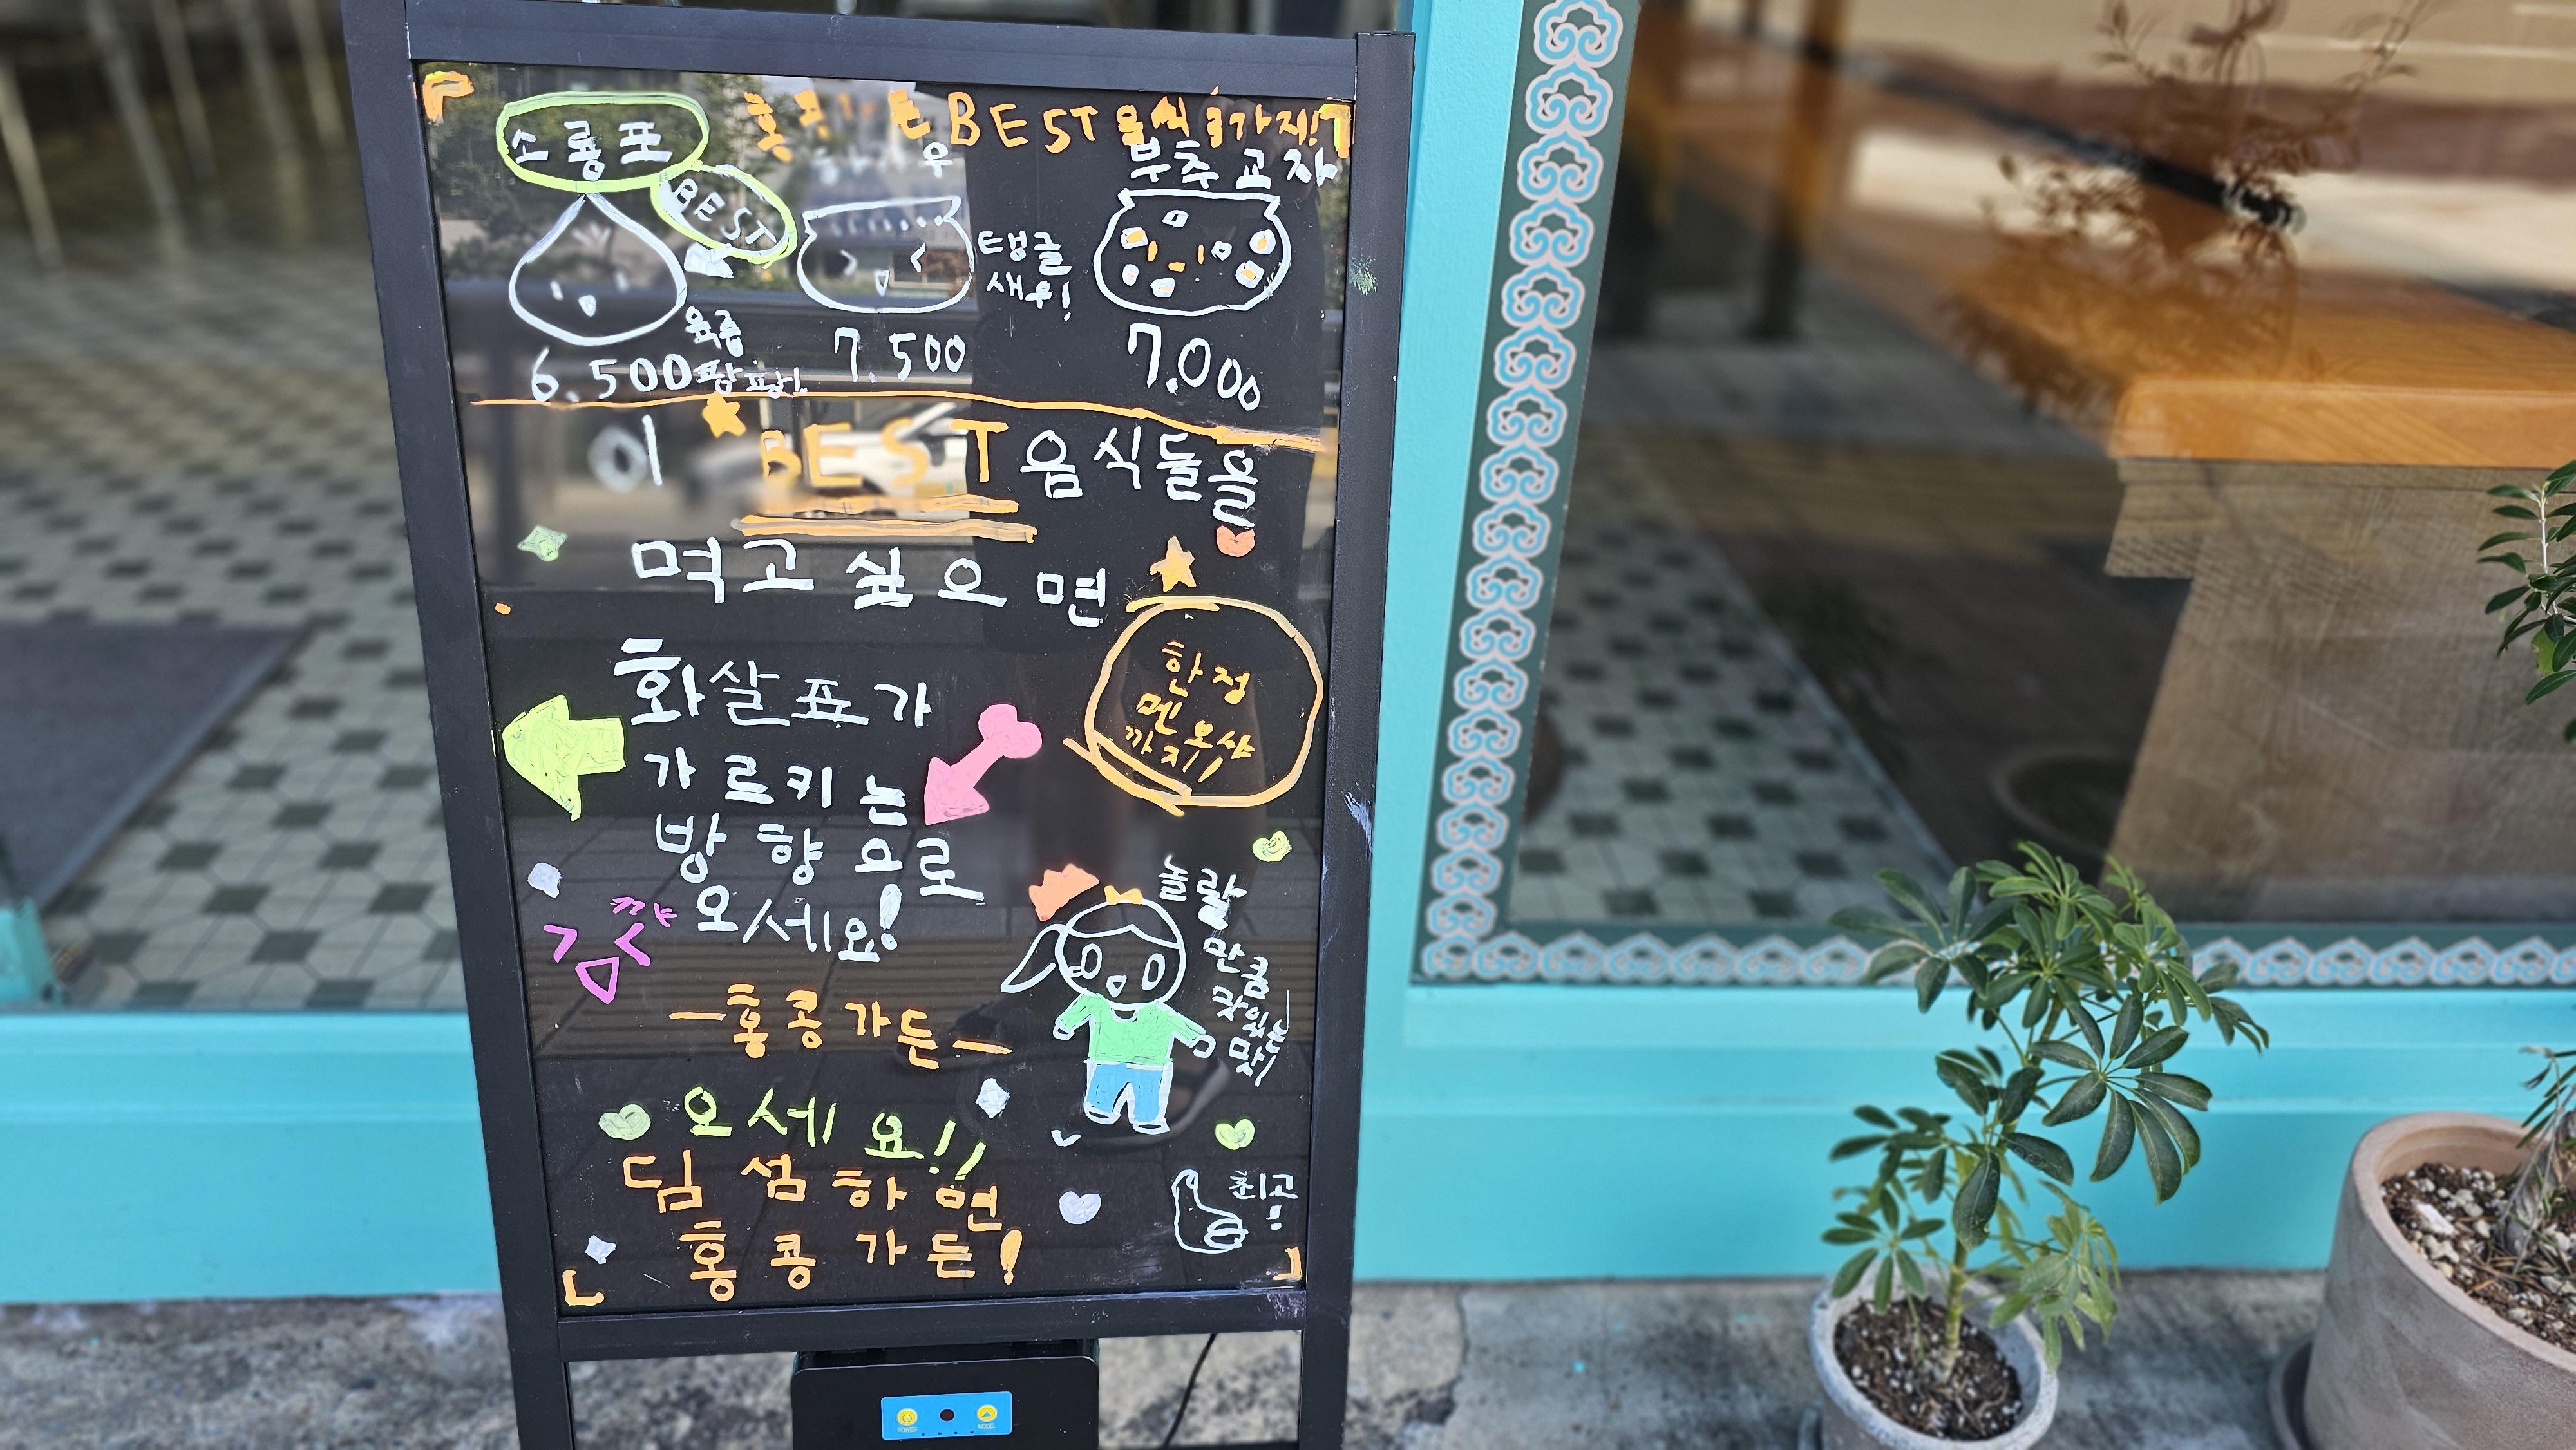 BEST 음식 3가지!
소룡포
BEST
육즙
팡팡!
6.500
탱글
새우!
7.500
부추교자
7.000
이 BEST 음식들을
먹고 싶으면
화살표가
가르키는
방향으로
오세요!
한정
까지!
꺅
놀랄
만큼
맛있는
맛!
-홍콩가든-
오세요!!
딤섬하면
홍콩가든!
최고
!
POWER
MODE